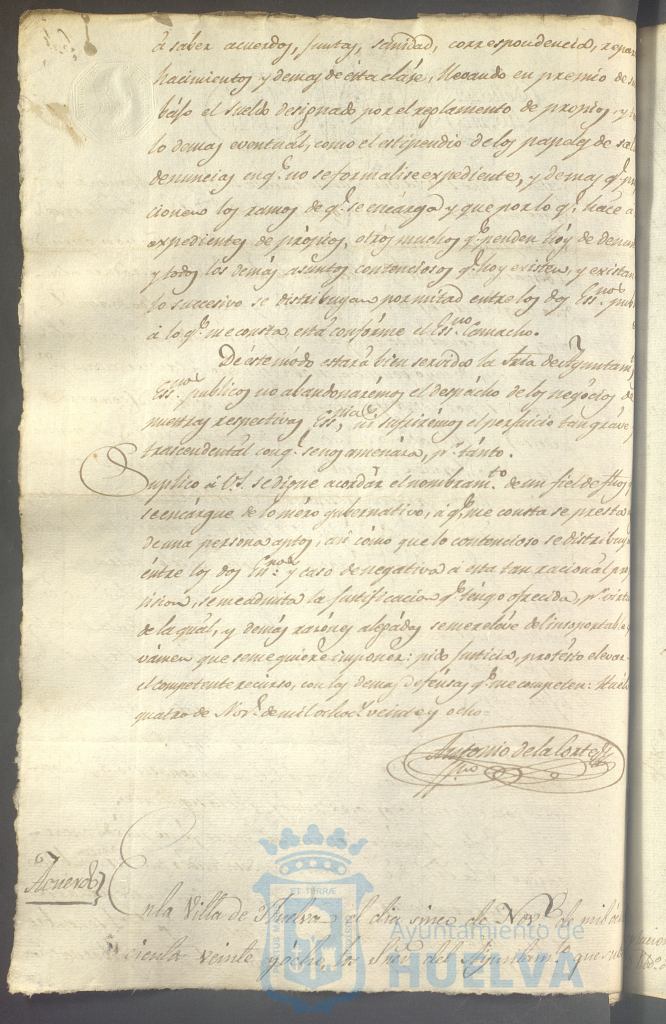 á saber acuerdos, juntas, sanidad, correspondencia, repar
hacimientos y demas de esta clase, llevando en premio de su
bájo el sueldo designado por el reglamento de propios, y
lo demas eventuál, como el estipendio de los papeles de sal
denuncias en q.e no se formalise expediente, y demas q.e
cionen los ramos de q.e se encárga y que por lo q.e hace á
expedientes de própios, otros muchos q.e penden hóy de denun
y todos los demás asuntos contenciosos q.e hoy existen, y existan
lo succesivo se distribuyan por mitad entre los dos Ess.nos pub
á lo q.e me consta está confórme el Ess.no Camacho.
De este módo estará bien servida la Sria de Ayuntam
Ess.nos publicos no abandonarémos el despácho de los negócios de
nuestras respectivas Ess.nias ni sufrirémos el perjuicio tan gráve y
trascendentál con q.e se nos amenáza, p.r tánto.
Suplico á VS. se digne acordár el nombram.to de un fiel de fhos
se encárgue de lo méro gubernativo, á q.e me consta se presta
de una persona aptos, asi cómo que lo contencioso se distribuy
éntre los dos Es.nos y caso de negativa á esta tan racionál pre
tision, se me admita la justificación q.e téngo ofrecida, p.r virtu
de la quál, y demás razónes alegádas se me reléve del insoportable
vámen que se me quiere imponer: pido justicia, protésto elevar
el competente recurso, con las demas defénsas q.e me competen: Huel
quatro de Nov.e de mil ochoc.s veinte y ocho
Antonio de la Corte
Acuerdo
En la Villa de Huelva el dia sinco de Nov.e de mil ocho
cientos veinte y ócho, los Sres. del Ayuntam.to que sub
ET TERRÆ
Ayuntamiento de
HUELVA